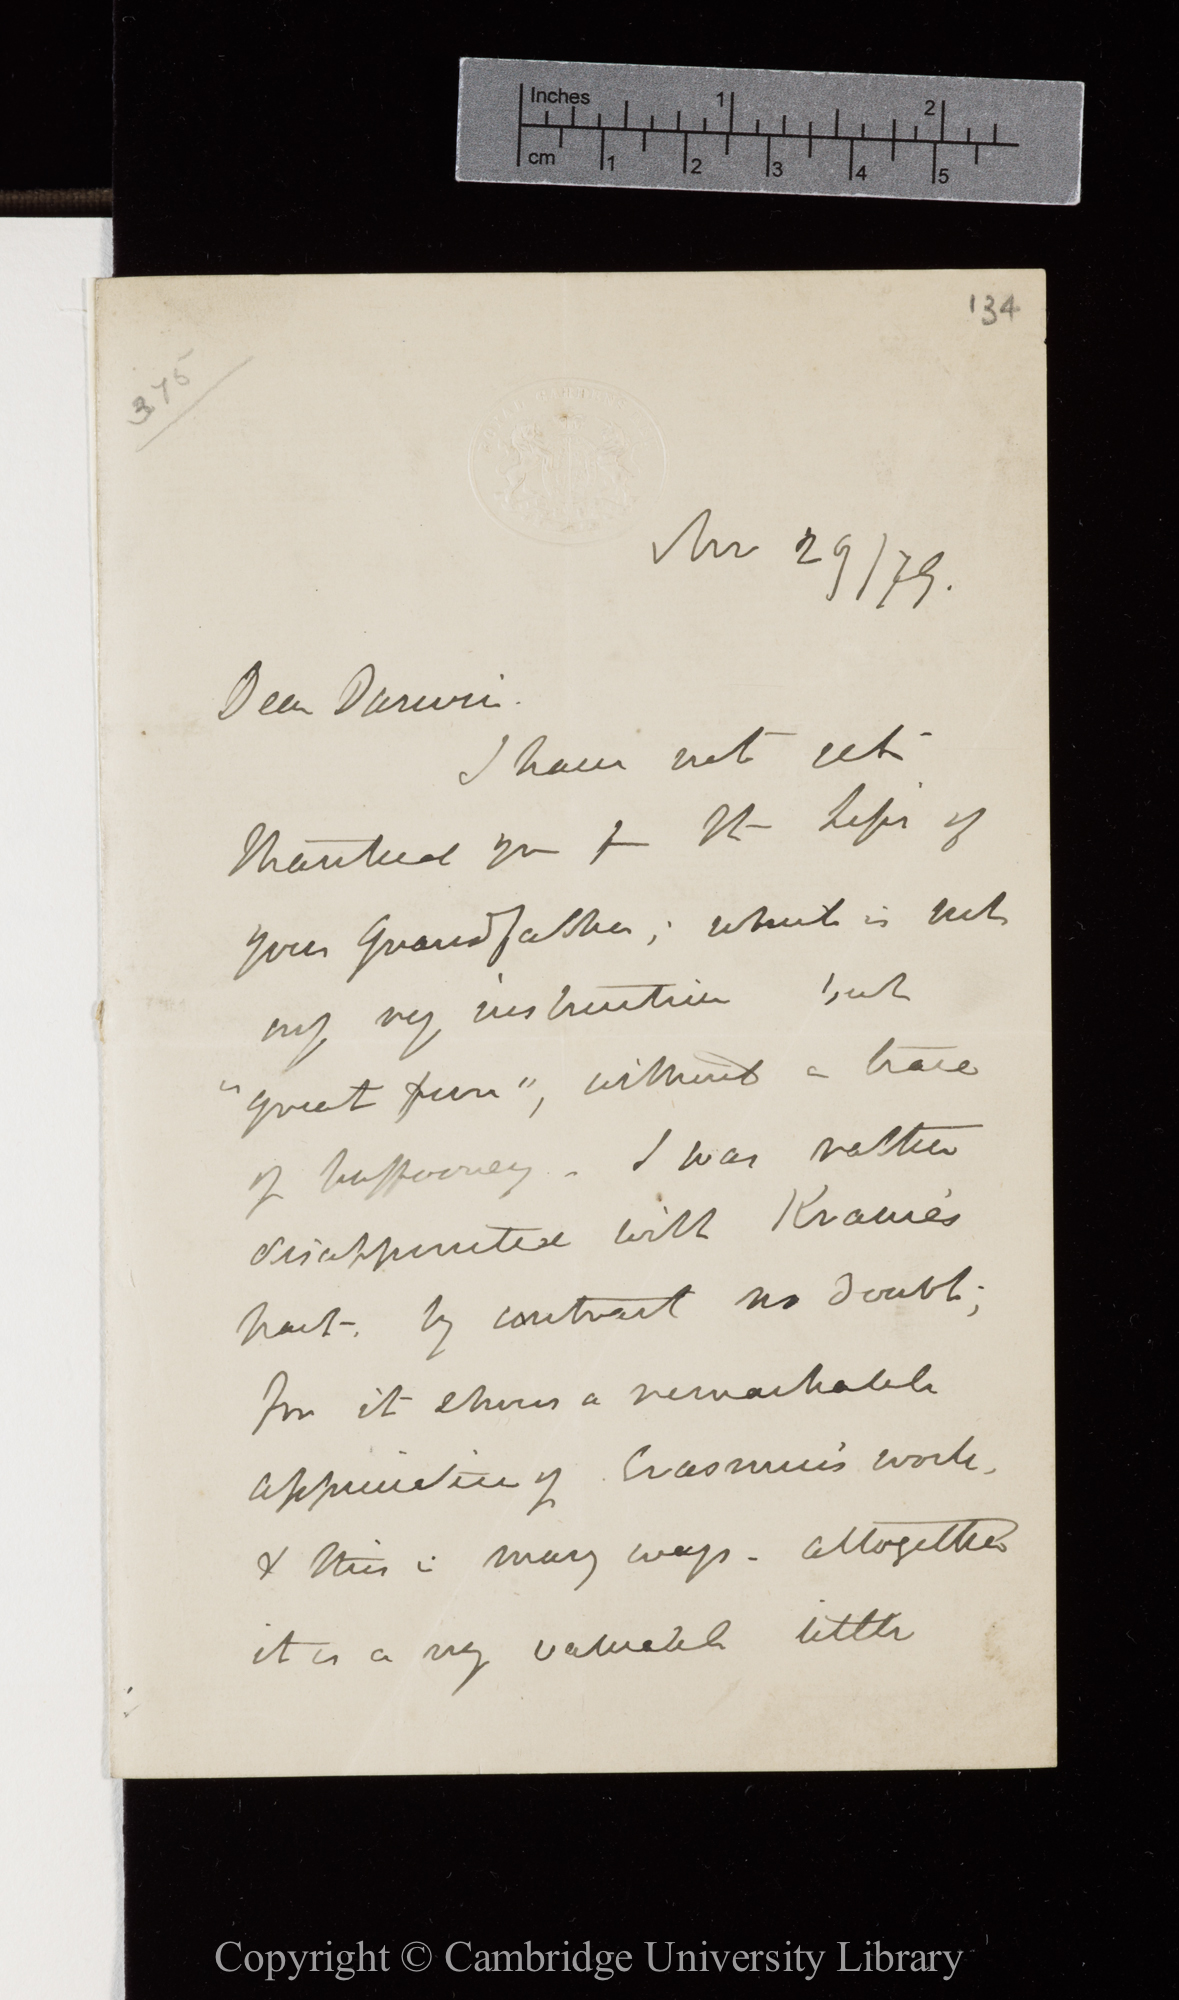 Inches
1
2
cm
1
2
3
4
5
134
375
Nov 29/79.
Dear Darwin.
I have not yet
thanked you for the Life of
your Grandfather; which is not
only very instructive but
"great fun", without a trace
of buffoonery. I was rather
disappointed with Krause's
part. by contrast no doubt;
for it shows a remarkable
appreciation of Erasmus's work,
& this in many ways. altogether
it is a very valuable little
Copyright © Cambridge University Library